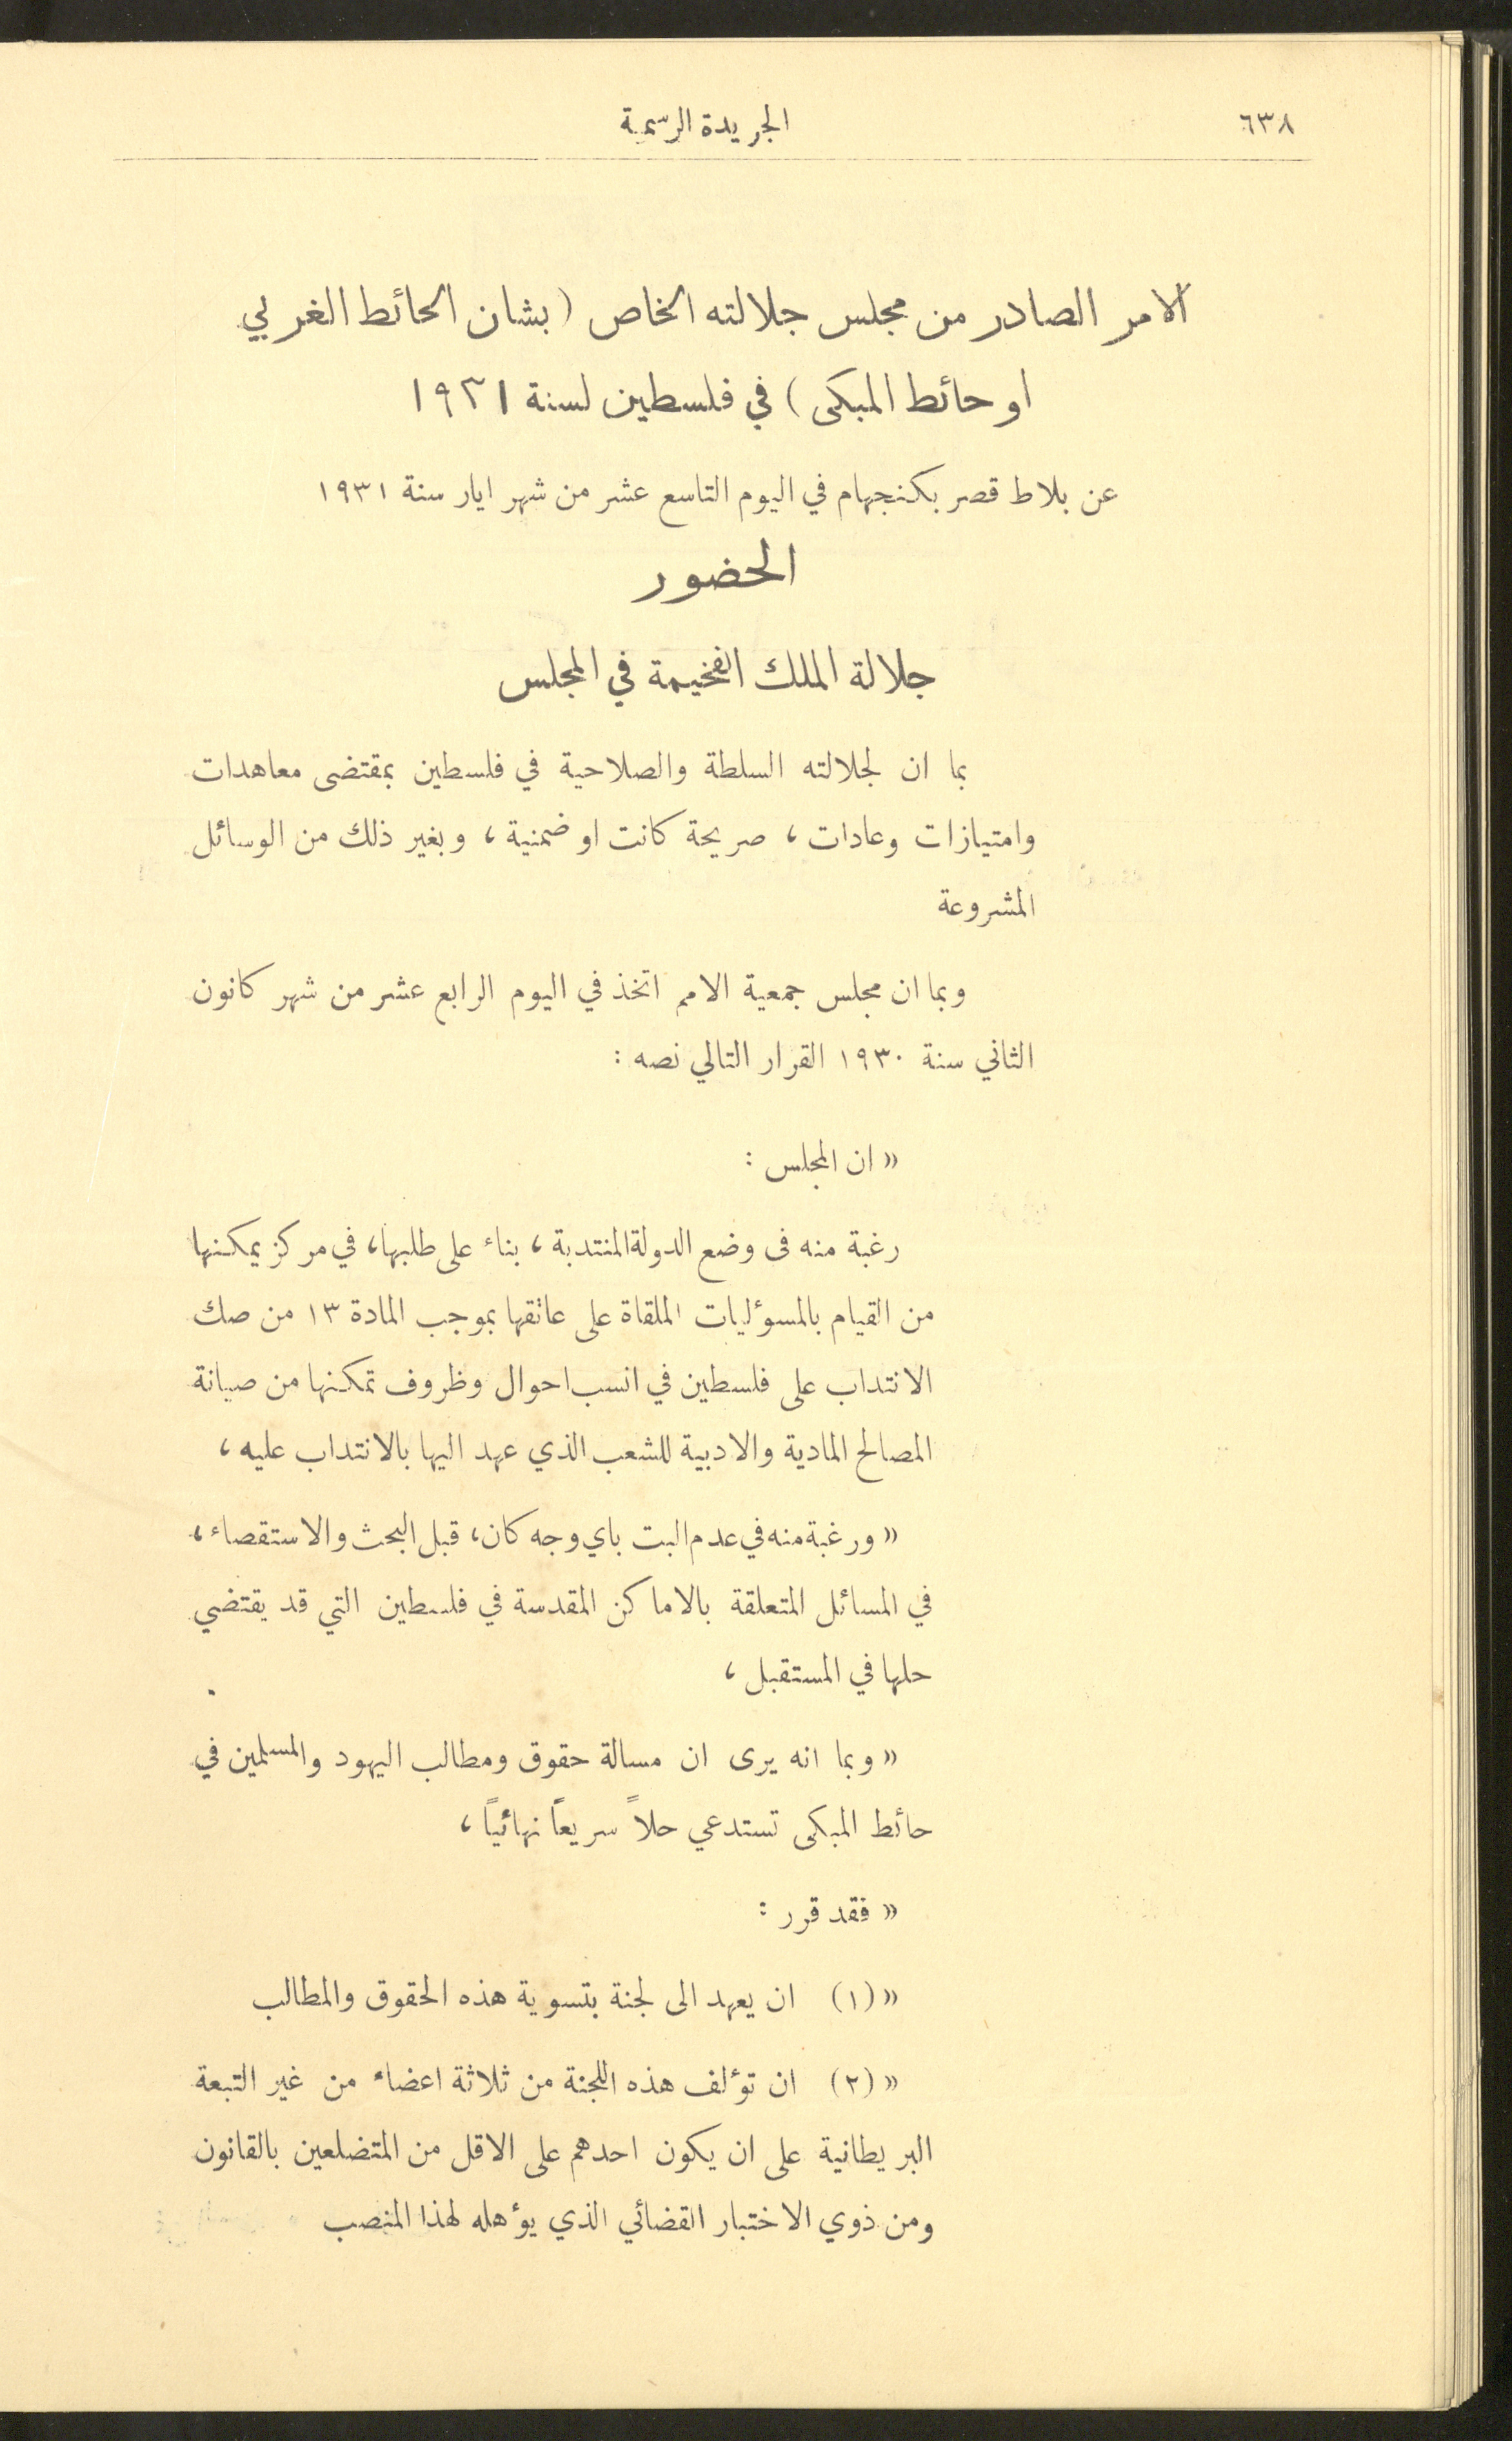 ٦٣٨
الجريدة الرسمية
الامر الصادر من مجلس جلالته الخاص (بشان الحائط الغربي
او حائط المبكى) في فلسطين لسنة ١٩٣١
عن بلاط قصر بكنجهام في اليوم التاسع عشر من شهر ايار سنة ١٩٣١
الحضور
جلالة الملك الفخيمة في المجلس
بما ان لجلالته السلطة والصلاحية في فلسطين بمقتضى معاهدات
وامتيازات وعادات، صريحة كانت او ضمنية، وبغير ذلك من الوسائل
المشروعة
وبما ان مجلس جمعية الامم اتخذ في اليوم الرابع عشر من شهر كانون
الثاني سنة ١٩٣٠ القرار التالي نصه :
« ان المجلس :
رغبة منه فى وضع الدولة المنتدبة، بناء على طلبها، في مركز يمكنها
من القيام بالمسوءليات الملقاة على عاتقها بموجب المادة ١٣ من صك
الانتداب على فلسطين في انسب احوال وظروف تمكنها من صيانة
المصالح المادية والادبية للشعب الذي عهد اليها بالانتداب عليه،
« ورغبة منه في عدم البت باي وجه كان، قبل البحث والاستقصاء،
في المسائل المتعلقة بالاماكن المقدسة في فلسطين التي قد يقتضي
حلها في المستقبل،
« وبما انه يرى ان مسالة حقوق ومطالب اليهود والمسلمين في
حائط المبكى تستدعي حلاً سريعاً نهائياً،
« فقد قرر :
« (١) ان يعهد الى لجنة بتسوية هذه الحقوق والمطالب
« (٢) ان توءلف هذه اللجنة من ثلاثة اعضاء من غير التبعة
البريطانية على ان يكون احدهم على الاقل من المتضلعين بالقانون
ومن ذوي الاختبار القضائي الذي يوءهله لهذا المنصب